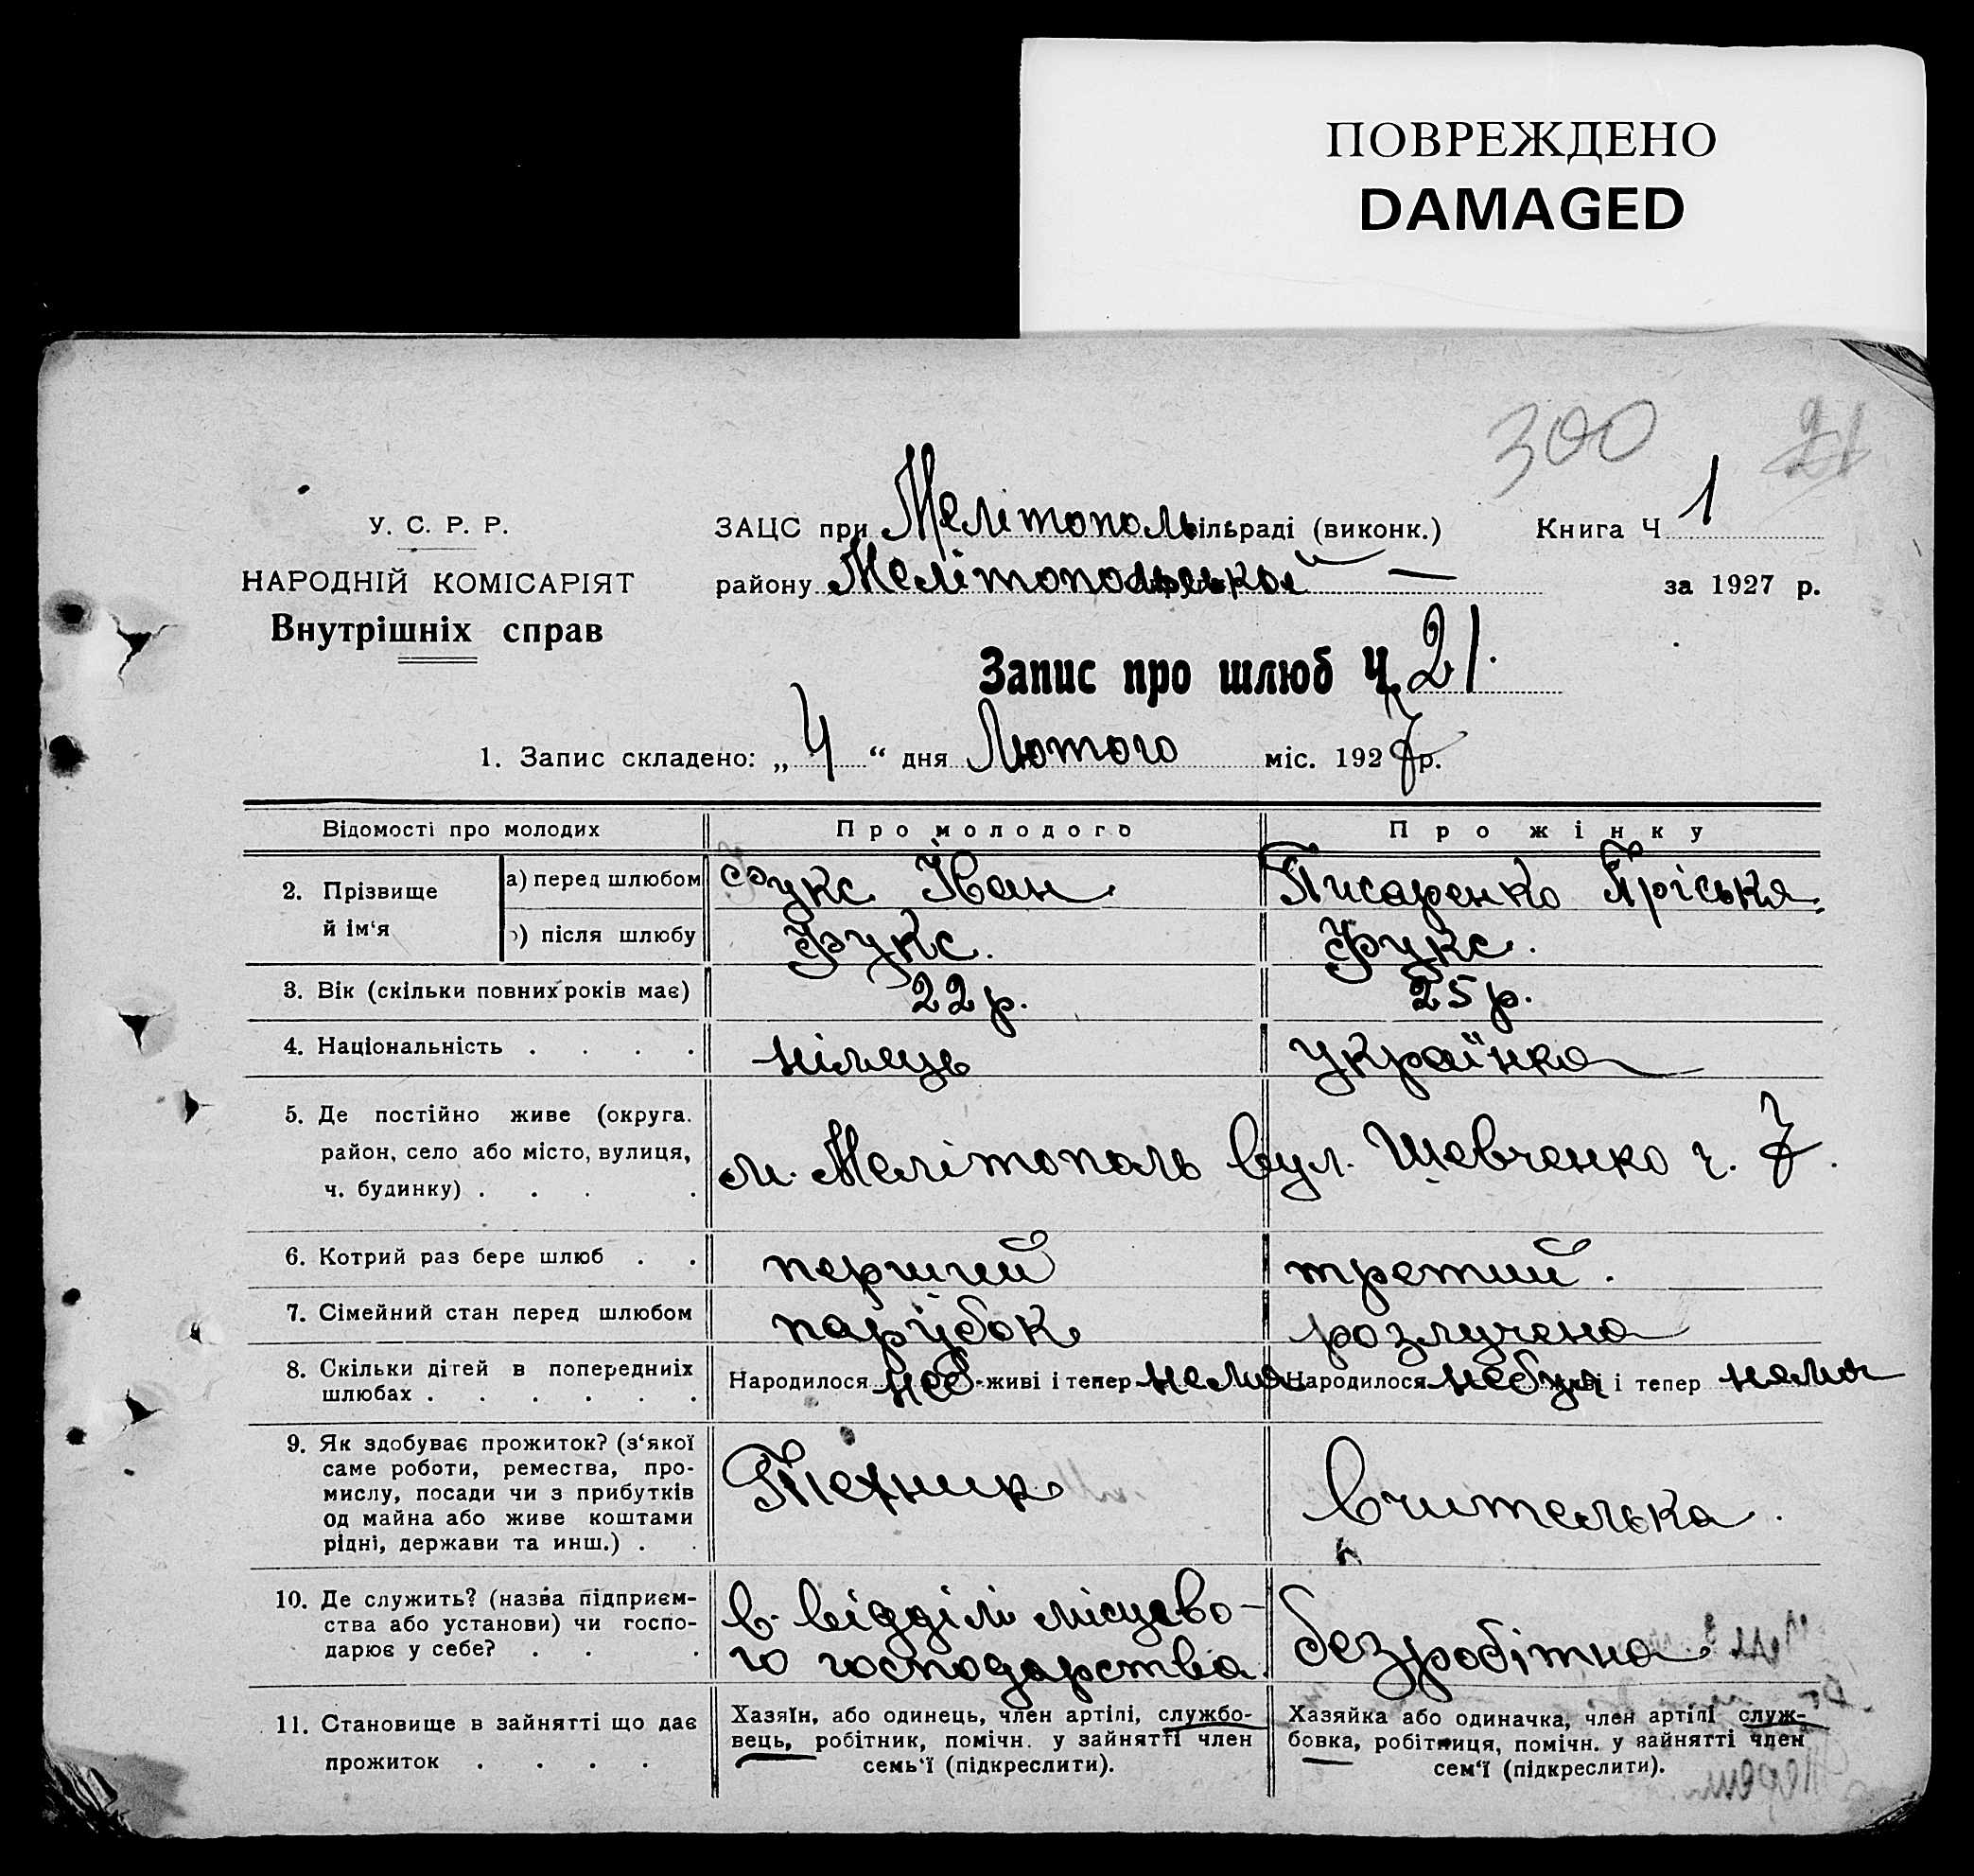 ПОВРЕЖДЕНО
DAMAGED
300 21
У. С. Р. Р.
НАРОДНІЙ КОМІСАРІЯТ
Внутрішніх справ
ЗАЦС при Мелітополь ільраді (виконк.)
Книга Ч 1
району Мелітопольської —
за 1927 р.
Запис про шлюб Ч. 21.
1. Запис складено: „ 4 “ дня Лютого міс. 1927 р.
Відомості про молодих Про молодого Про жінку
2. Прізвище й ім‘я
а) перед шлюбом Фукс Іван. Писаренко Пріська.
б) після шлюбу Фукс. Фукс.
3. Вік (скільки повних років має) 22 р. 25 р.
4. Національність . . . . німець українка
5. Де постійно живе (округа.
район, село або місто, вулиця,
ч. будинку) . . . .
м. Мелітополь вул. Шевченко ч. 7.
6. Котрий раз бере шлюб . . перший третий.
7. Сімейний стан перед шлюбом парубок розлучена
8. Скільки дітей в попередниіх
шлюбах . . . . . .
Народилося неб. живі і тепер нема
Народилося небул живі і тепер нема
9. Як здобуває прожиток? (з‘якої
саме роботи, ремества, про-
мислу, посади чи з прибутків
од майна або живе коштами
рідні, держави та инш.) . .
Техник
Вчителька.
10. Де служить? (назва підприєм-
ства або установи) чи госпо-
дарює у себе? . . .
в. відділі місцево-
го господарства.
безробітна.
11. Становище в зайнятті що дає
прожиток . . . .
Хазяїн, або одинець, член артілі, службо-
вець, робітник, помічн. у зайнятті член
семь‘ї (підкреслити).
Хазяйка або одиначка, член артілі служ-
бовка, робітниця, помічн. у зайнятті член
сем‘ї (підкреслити).